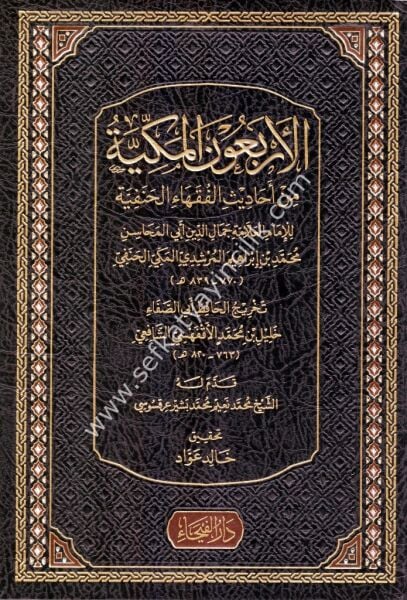 الأربعون المكية
من أحاديث الفقهاء الحنفية
للإمام العلامة جمال الدين أبي المحاسن
محمد بن إبراهيم المرشدي المكي الحنفي
(٧٧٠ - ٨٣٩ هـ)
تخريج الحافظ أبي الصفاء
خليل بن محمد الأقفهسي الشافعي
(٧٦٣ - ٨٢٠ هـ)
قدم له
الشيخ محمد نعيم محمد بشير عرقسوسي
تحقيق
خالد عواد
دار الفيحاء
www.serkanyayinmalik.com